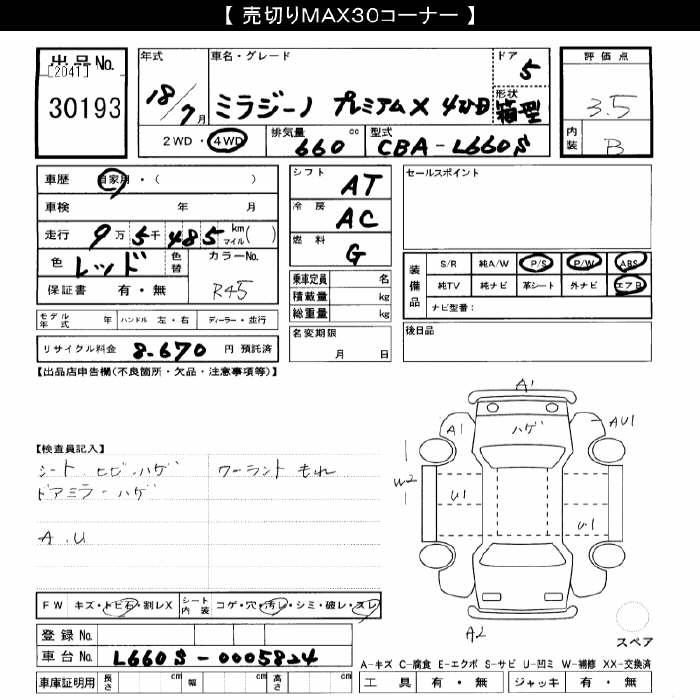 【 売切りMAX30コーナー 】
出品No.
[2041]
30193
年式
18/7月
車名・グレード
ミラジーノ プレミアムX 4WD
ドア
5
形状
箱型
2WD・4WD
排気量
660 cc
型式
CBA-L660S
評価点
3.5
内装
B
車歴 自家用・( )
車検 年 月
走行 9万5千485 km マイル( )
色 レッド 色替
カラーNo.
R45
保証書 有・無
モデル年式 年 ハンドル 左・右 ディーラー・並行
リサイクル料金 8.670 円 預託済
シフト AT
冷房 AC
燃料 G
乗車定員 名
積載量 kg
総重量 kg
名変期限
月 日
セールスポイント
装備品
S/R 純A/W P/S P/W ABS
純TV 純ナビ 革シート 外ナビ エアB
ナビ型番:
後日品
【出品店申告欄(不良箇所・欠品・注意事項等)】
【検査員記入】
シート ヒビ・ハゲ
ワーラント もれ
ドアミラーハゲ
A.U
A1
ハゲ
A1
AU1
W2
U1
U1
A2
スペア
FW キズ・トビ石・割レX
シート内装 コゲ・穴・汚レ・シミ・破レ・スレ
登録No.
車台No. L660S-0005824
車庫証明用 長さ cm 幅 cm 高さ cm
A-キズ C-腐食 E-エクボ S-サビ U-凹ミ W-補修 XX-交換済
工具 有・無 ジャッキ 有・無